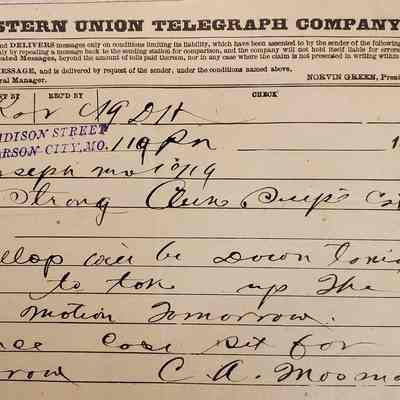 STERN UNION TELEGRAPH COMPANY
and DELIVERS messages only on conditions limiting its liability, which have been assented to by the sender of the following
only by repeating a message back to the sending station for comparison, and the company will not hold itself liable for errors
eated Messages, beyond the amount of tolls paid thereon, nor in any case where the claim is not presented in writing within
MESSAGE, and is delivered by request of the sender, under the conditions named above.
ral Manager. NORVIN GREEN, Presi
NT BY REC'D BY CHECK
19 DH
DISON STREET
ERSON CITY, MO. 119 Pm 1
oseph mo 10/19
Strong Clerk Sup
llop will be down tonig
to take up the
motion tomorrow.
case set for
rrow C. A. Mosma